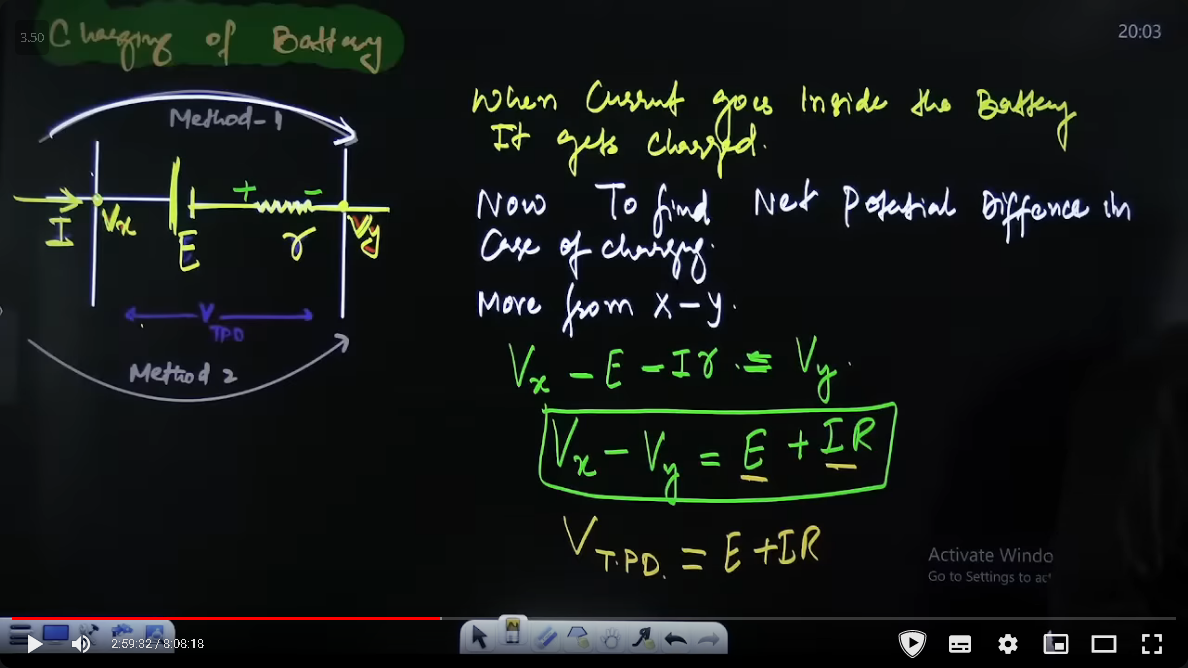 3.50
Charging of Battery
20:03
Method-1
I
Vx
E
r
Vy
+
-
V
TPD
Method 2
When Current goes Inside the Battery
It gets Charged.
Now To find Net Potential Diffence in
Case of charging.
Move from x-y.
Vx - E - Ir = Vy.
Vx - Vy = E + IR
VT.P.D. = E + IR
Activate Windo
Go to Settings to act
2:59:32 / 8:08:18